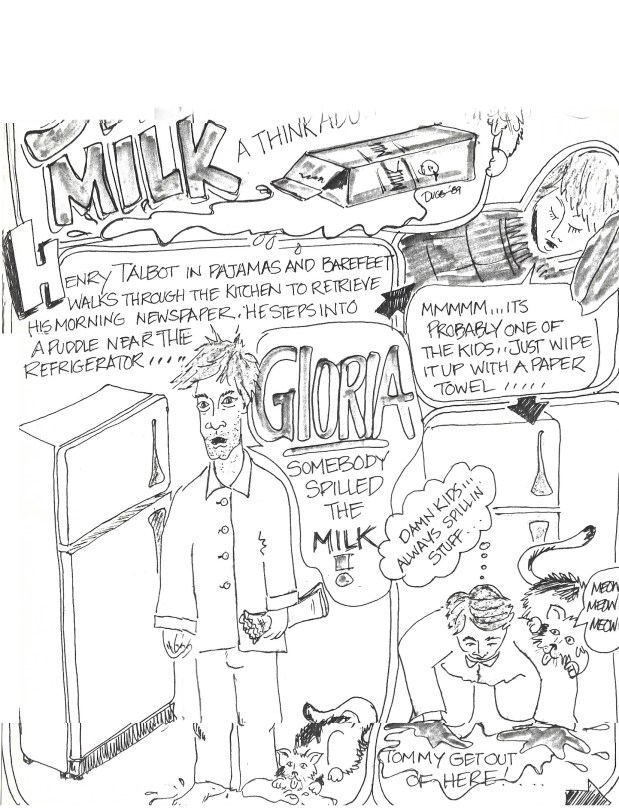 MILK
A THINK
MILK
DUGE-89
HENRY TALBOT IN PAJAMAS AND BAREFEET
WALKS THROUGH THE KITCHEN TO RETRIEVE
HIS MORNING NEWSPAPER. HE STEPS INTO
A PUDDLE NEAR THE
REFRIGERATOR .....
MMMMM...ITS
PROBABLY ONE OF
THE KIDS..JUST WIPE
IT UP WITH A PAPER
TOWEL .....
GLORIA
SOMEBODY
SPILLED
THE
MILK
!!
DAMN KIDS...
ALWAYS SPILLIN'
STUFF...
MEOW
MEOW
MEOW!
TOMMY GET OUT
OF HERE!....